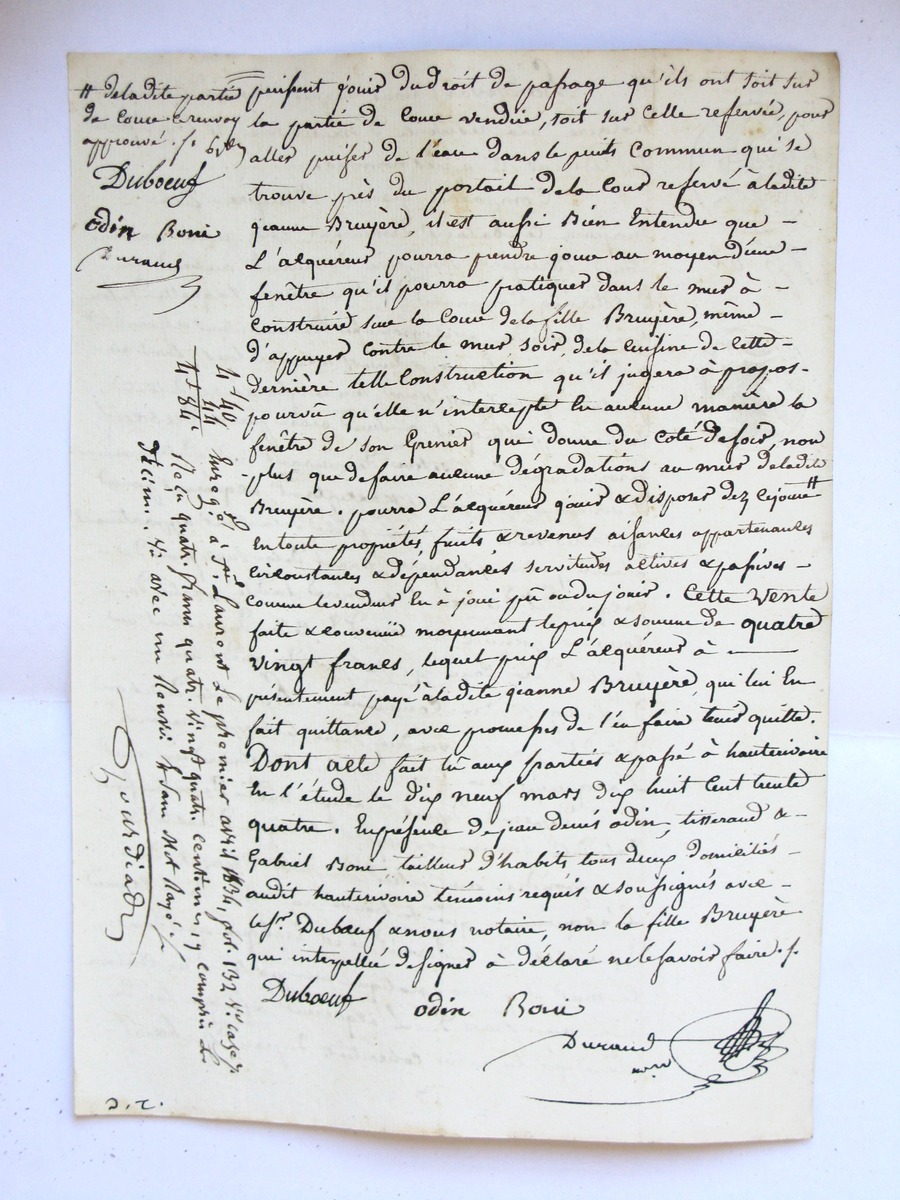 # de la dite partie
de Cour Renvoy
approuvé
Duboeuf
odin Boni
Durand
puissent jouir du droit de passage qu'ils ont soit sur
la partie de Cour vendue, soit sur Celle reservée, pour
aller puiser de l'eau dans le puits Commun qui se
trouve près du portail de la Cour reservé à ladite
jeanne Bruyère, il est aussi Bien Entendu que –
L'acquéreur pourra prendre jour au moyen d'une –
fenêtre qu'il pourra pratiquer dans le mur à –
Construire sur la Cour de la fille Bruyère, même –
d'appuyer Contre le mur, soir, de la Cuisine de Cette –
dernière telle Construction qu'il jugera à propos –
pourvû qu'elle n'intercepte En aucune manière la
fenêtre de son Grenier qui donne du Coté de soir, non
-plus que de faire aucune dégradations au mur de ladite
Bruyère. pourra L'acquéreur jouir & disposer dez cejour #
En toute propriétés, fruits, & revenes aisances appartenances
Circonstances & dépendances servitudes actives & passives –
Comme le vendeur En à joui pu ou du jouir. Cette Vente
faite & Convenüe moyennant le prix & somme de quatre
vingt francs, lequel prix L'acquéreur à —
présentement payé à ladite jeanne Bruyère, qui lui En
fait quittance, avec promesses de l'en faire tenir quitte.
Dont acte fait lû aux parties & passé à hauterivoire
En l'étude le dix neuf mars dix huit Cent trente
quatre. En présence de jean denis odin, tisserand & –
Gabriel Boni tailleur d'habits tous deux domiciliés –
audit hauterivoire témoins requis & soussignés avec –
le sr. Duboeuf & nous notaire, non la fille Bruyère
qui interpellée de signer à déclaré ne le savoir faire.
Duboeuf odin Boni
Durand
nore
4-40
44
4f 84c
Enregé à St. Laurent le premier avril 1834, fol. 132 Vo. case
Reçu quatre francs quatre vingt quatre centimes y compris le
décime. Vû avec un Renvoi & Sans Mot Rayé
Gourdiat